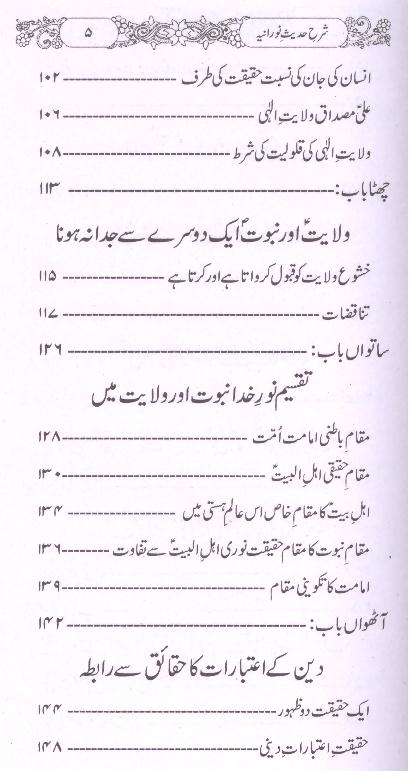 شرح حدیث نورانیہ ۵
انسان کی جان کی نسبت حقیقت کی طرف ------ ۱۰۲
علیؑ مصداق ولایتِ الٰہی ------ ۱۰۶
ولایتِ الٰہی کی قبولیت کی شرط ------ ۱۰۸
چھٹا باب: ------ ۱۱۳
ولایتؑ اور نبوتؐ ایک دوسرے سے جدا نہ ہونا
خشوع ولایت کو قبول کرواتا ہے اور کرتا ہے ------ ۱۱۵
تناقضات ------ ۱۱۷
ساتواں باب: ------ ۱۲۶
تقسیمِ نورِ خدا نبوت اور ولایت میں
مقامِ باطنی امامت اُمّت ------ ۱۲۸
مقامِ حقیقی اہل البیتؑ ------ ۱۳۰
اہلِ بیتؑ کا مقامِ خاص اس عالمِ ہستی میں ------ ۱۳۴
مقامِ نبوت کا مقام حقیقت نوری اہل البیتؑ سے تفاوت ------ ۱۳۶
امامت کا تکوینی مقام ------ ۱۳۹
آٹھواں باب: ------ ۱۴۲
دین کے اعتبارات کا حقائق سے رابطہ
ایک حقیقت دو ظہور ------ ۱۴۴
حقیقتِ اعتباراتِ دینی ------ ۱۴۸